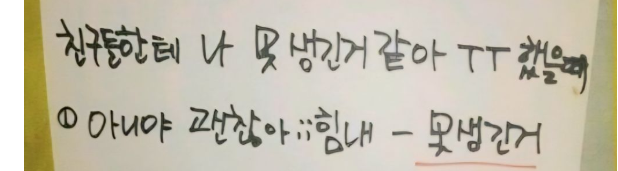 친구들한테 나 못생긴거 같아 ㅜㅜ 했을때
① 아니야 괜찮아;; 힘내 - 못생긴거